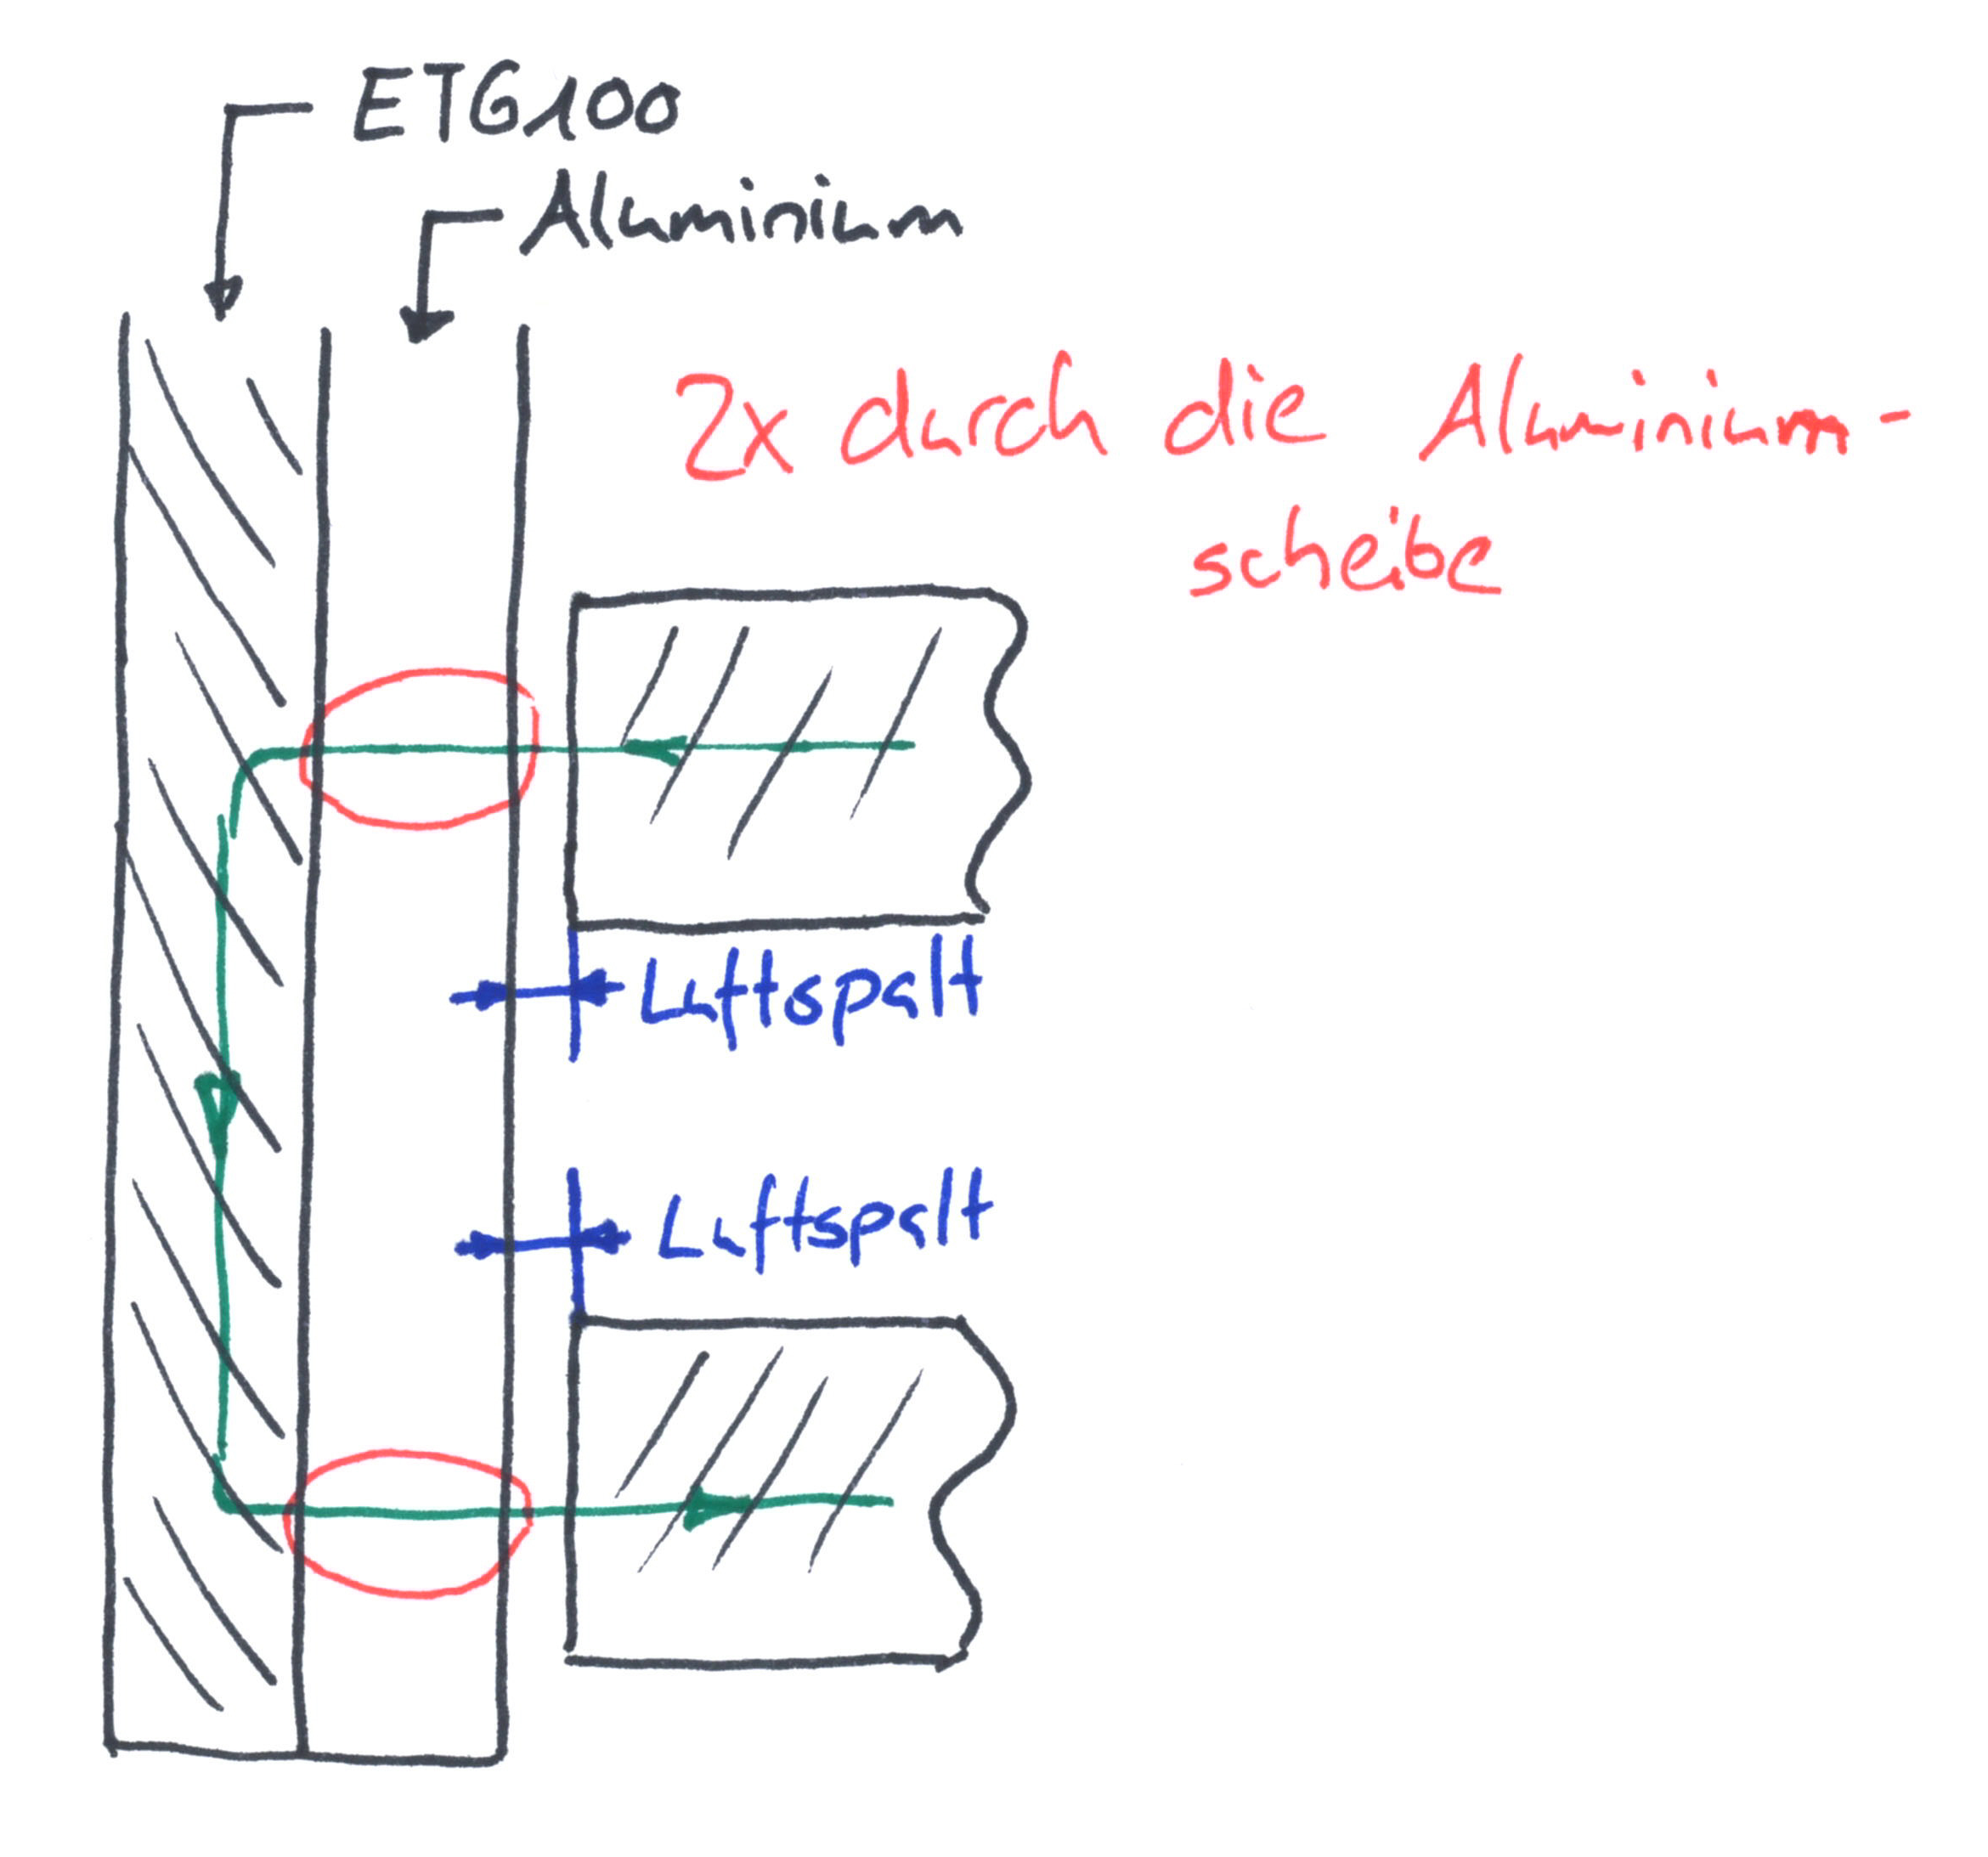 ETG100
Aluminium
2x durch die Aluminium-
scheibe
Luftspalt
Luftspalt